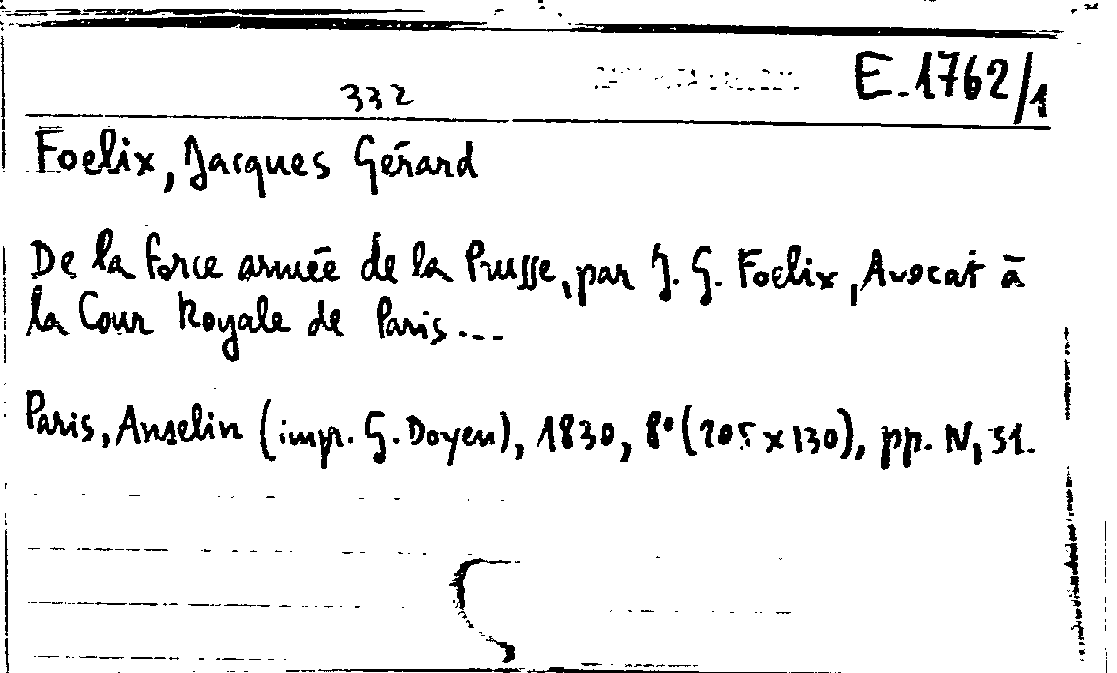 332
E.1762/1
Foelix, Jacques Gérard
De la force armée de la Prusse, par J. G. Foelix, Avocat à
la Cour Royale de Paris...
Paris, Anselin (impr. G. Doyen), 1830, 8° (205 x 130), pp. IV, 51.